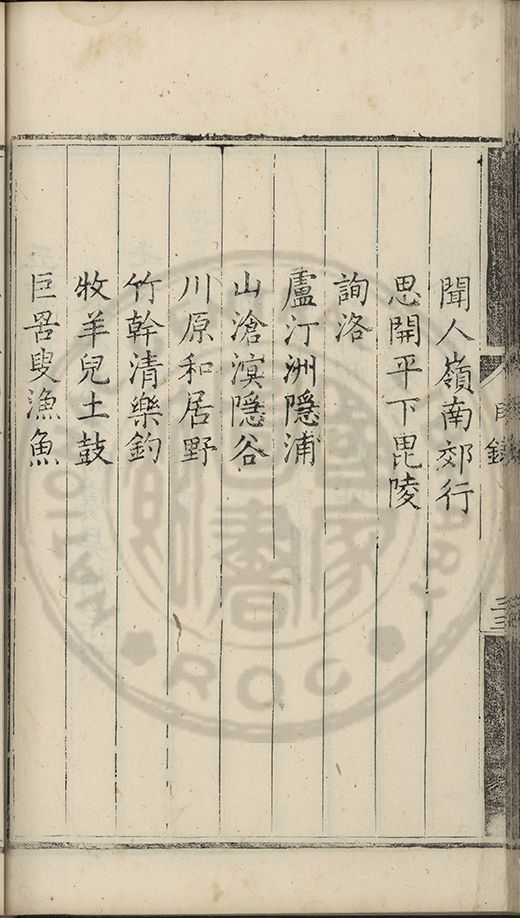 聞人嶺南郊行
思開平下毘陵
詢洛
盧汀洲隱浦
山滄溟隱谷
川原和居野
竹幹清樂釣
牧羊兒土鼓
巨罟叟漁魚
目錄